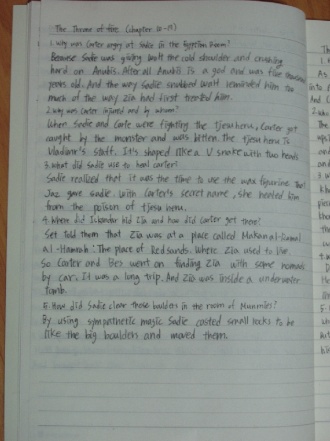 The Throne of fire (Chapter 10-15)
1. Why was Carter angry at Sadie in the Egyptian Room?
Because Sadie was giving Walt the cold shoulder and crushing
hard on Anubis. After all Anubis is a god and was five thousand
years old. And the way Sadie snubbed Walt reminded him too
much of the way Zia had first treated him.
2. Why was Carter injured and by whom?
When Sadie and Carte were fighting the tjesu heru, Carter got
caught by the monster and was bitten. The tjesu heru is
Vladimir's staff. It's shaped like a V snake with two heads
3. What did Sadie use to heal carter?
Sadie realized that it was the time to use the wax figurine that
Jaz gave sadie. With Carter's secret name, she healed him
from the poison of tjesu heru.
4. Where did Iskandar hid Zia and how did Carter get there?
Set told them that Zia was at a place called Makan al-Ramal
al-Hamrah: The place of Red sands. Where Zia used to live.
So Carter and Bes went on finding Zia with some nomads
by car. It was a long trip. And Zia was inside a underwater
tomb.
5. How did Sadie clear those boulders in the room of Mummies?
By using sympathetic magic Sadie casted small rocks to be
like the big boulders and moved them.